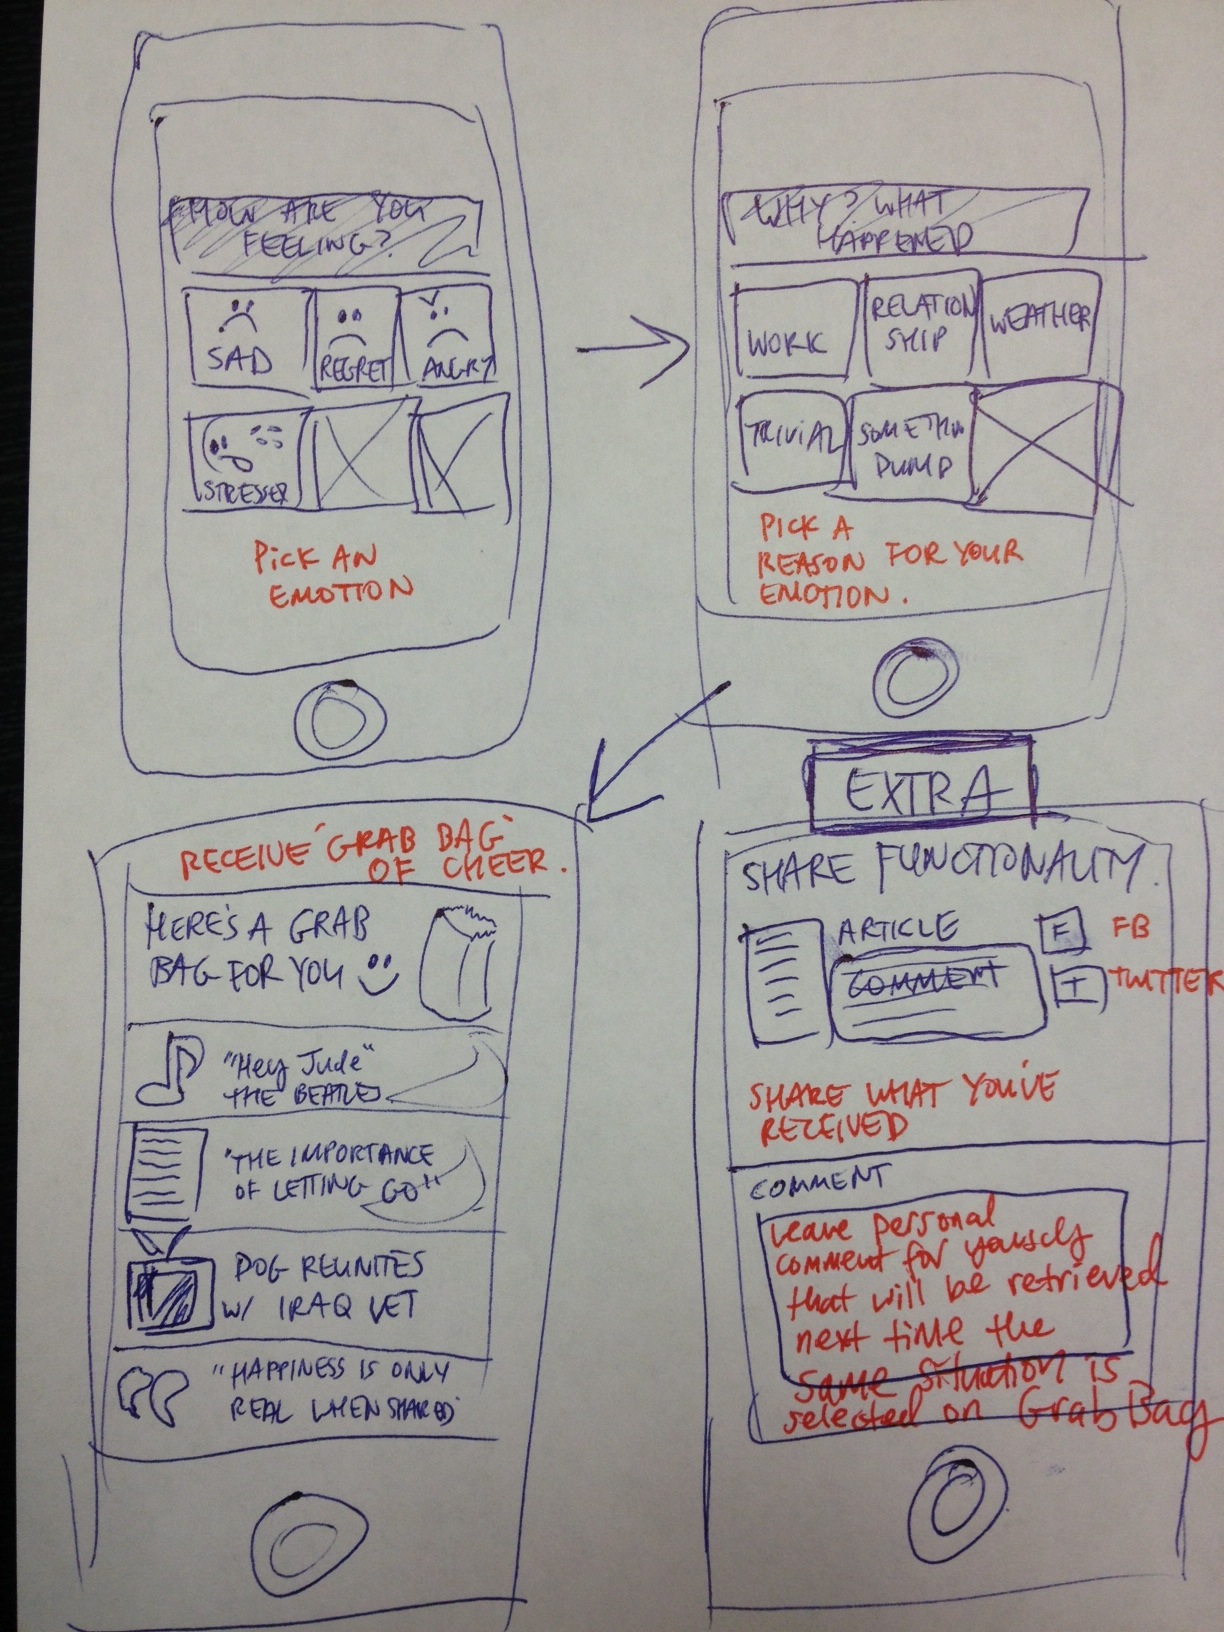 HOW ARE YOU
FEELING?
SAD
REGRET
ANGRY
STRESSED
PICK AN
EMOTION
WHY? WHAT
HAPPENED
WORK
RELATION
SHIP
WEATHER
TRIVIAL
SOMETHIN
DUMP
PICK A
REASON FOR YOUR
EMOTION.
RECEIVE 'GRAB BAG'
OF CHEER.
HERE'S A GRAB
BAG FOR YOU
"Hey Jude"
THE BEATLES
"THE IMPORTANCE
OF LETTING GO"
DOG REUNITES
W/ IRAQ VET
"HAPPINESS IS ONLY
REAL WHEN SHARED"
EXTRA
SHARE FUNCTIONALITY.
ARTICLE
COMMENT
F FB
T TWITTER
SHARE WHAT YOU'VE
RECEIVED
COMMENT
Leave personal
comment for yourself
that will be retrieved
next time the
same situation is
selected on Grab Bag